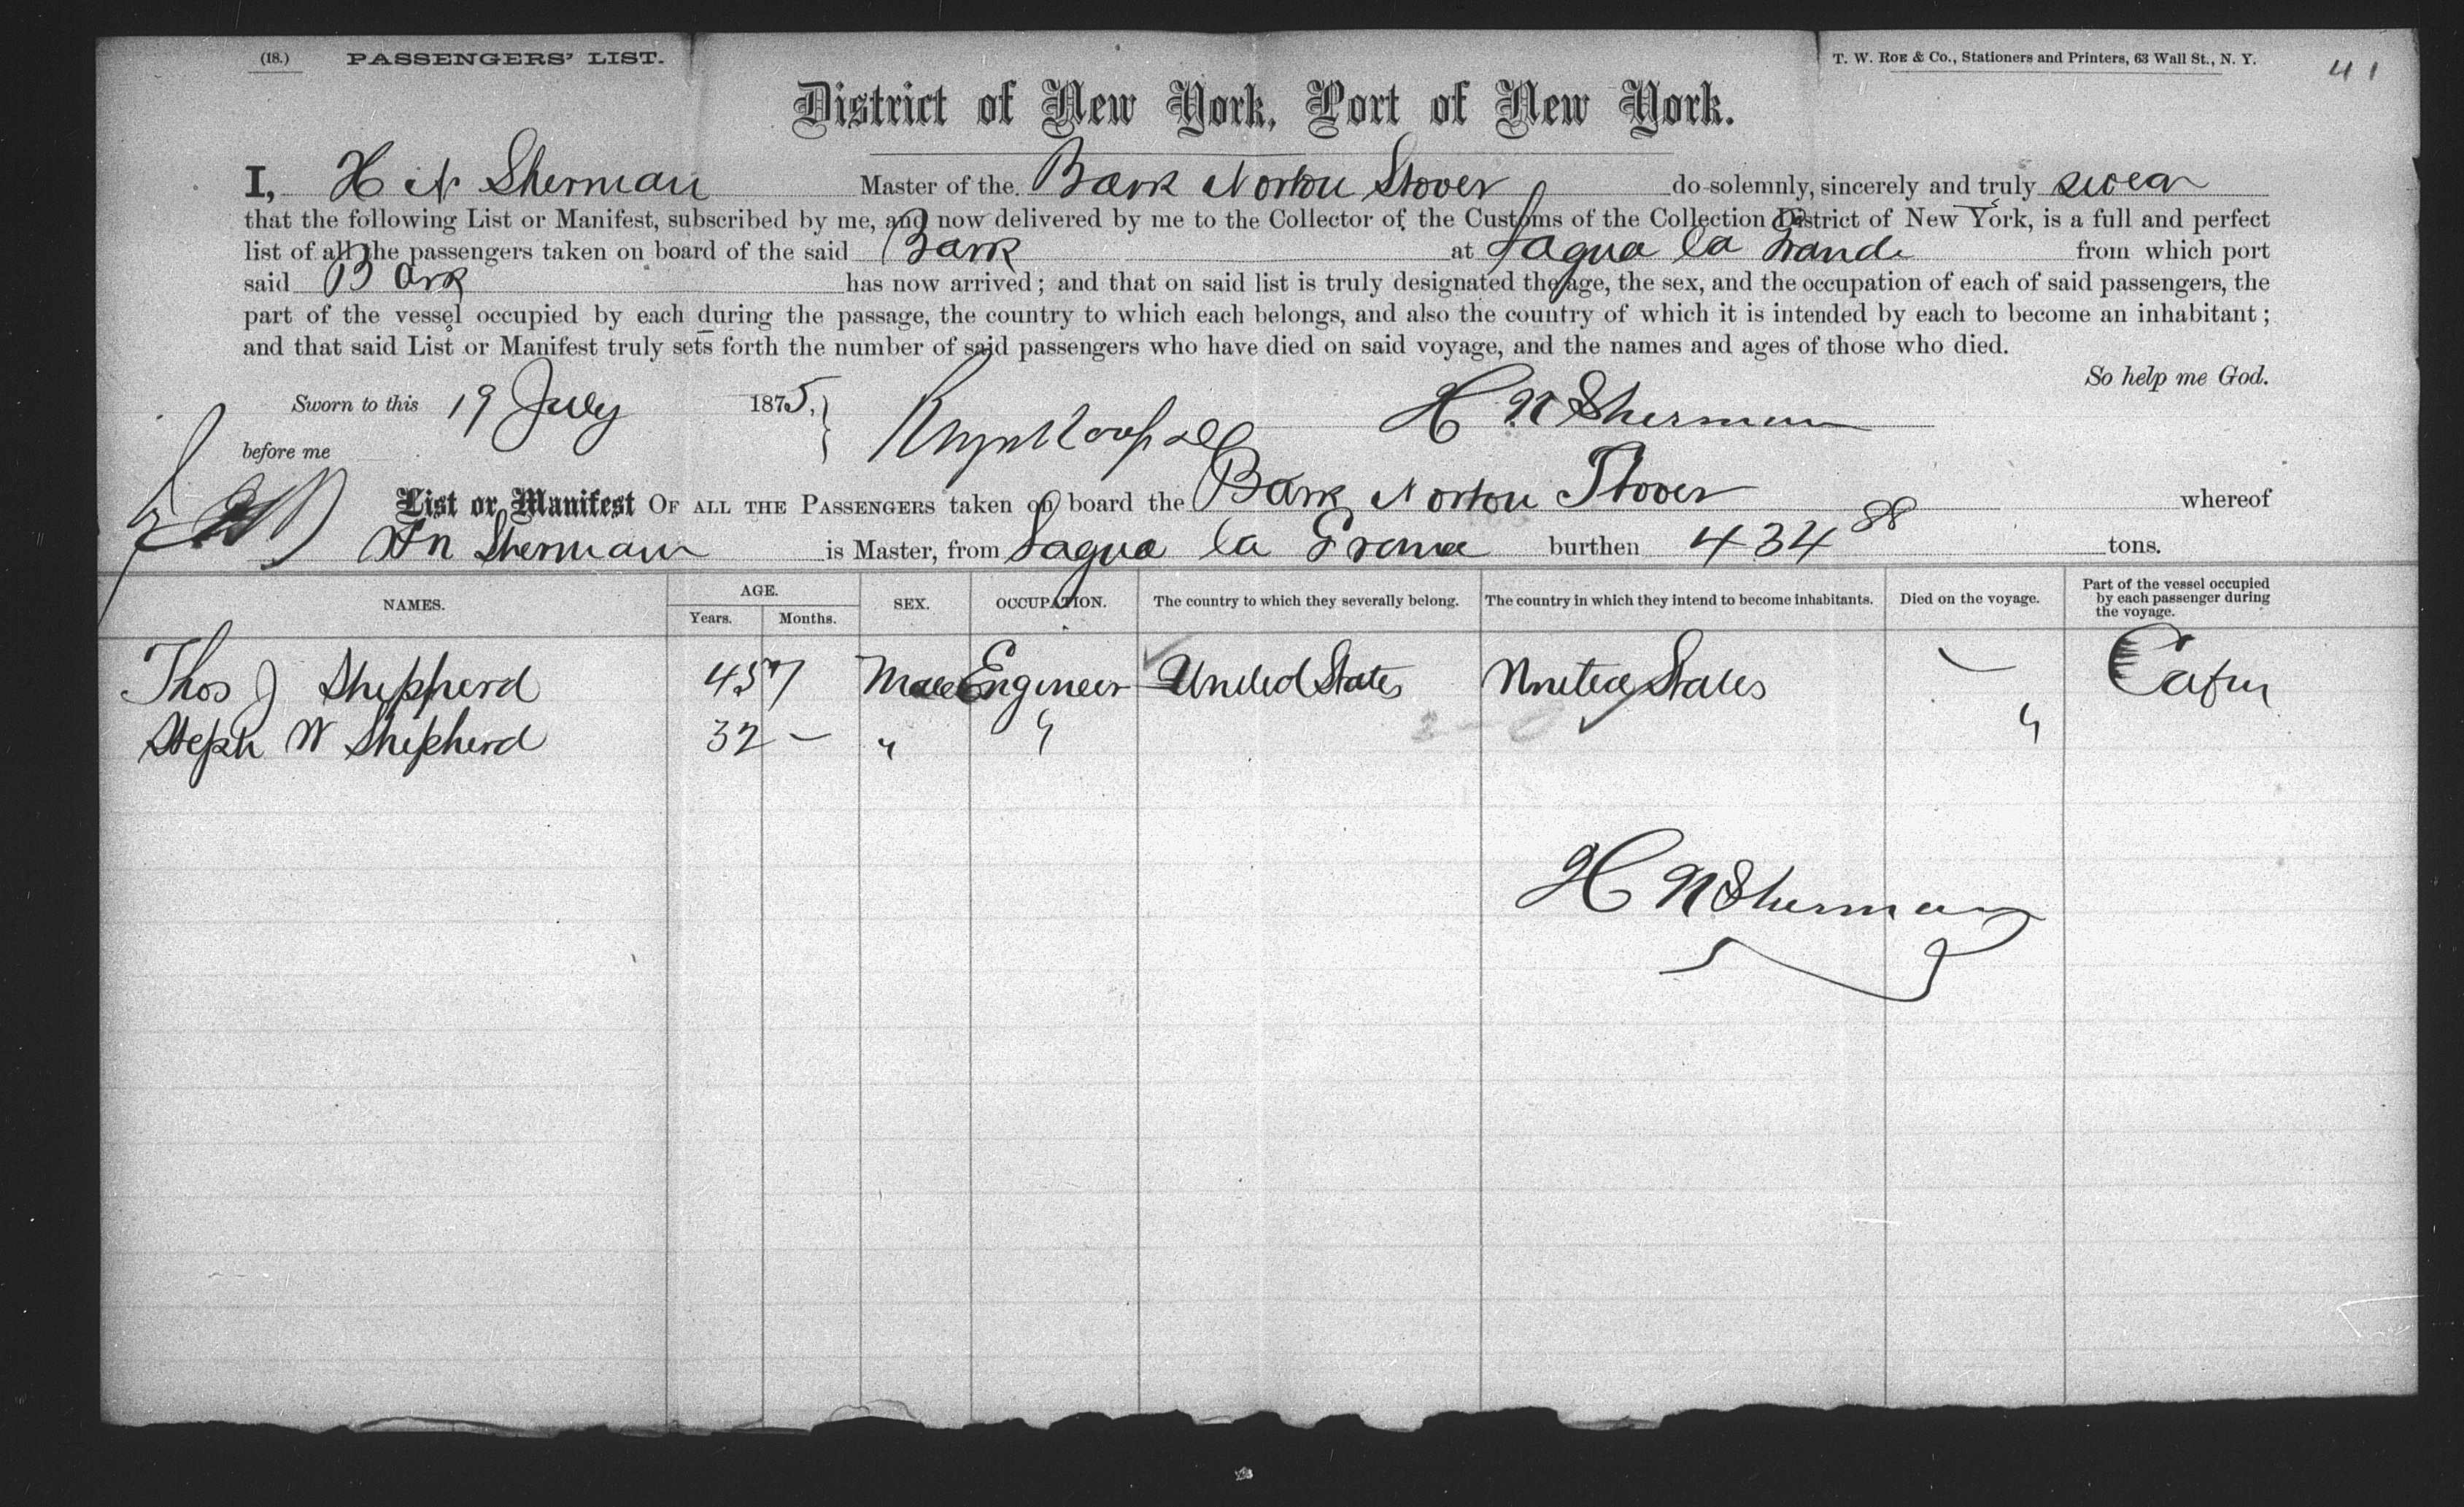 (18.) PASSENGERS' LIST. T. W. ROE & CO., Stationers and Printers, 63 Wall St., N. Y. 41
District of New York, Port of New York.
I, H N Sherman Master of the Bark Norton Stover do solemnly, sincerely and truly swear
that the following List or Manifest, subscribed by me, and now delivered by me to the Collector of the Customs of the Collection District of New York, is a full and perfect
list of all the passengers taken on board of the said Bark at Sagua la Grande from which port
said Bark has now arrived; and that on said list is truly designated the age, the sex, and the occupation of each of said passengers, the
part of the vessel occupied by each during the passage, the country to which each belongs, and also the country of which it is intended by each to become an inhabitant;
and that said List or Manifest truly sets forth the number of said passengers who have died on said voyage, and the names and ages of those who died.
So help me God.
Sworn to this 19 July 1875, H N Sherman
before me
List or Manifest OF ALL THE PASSENGERS taken on board the Bark Norton Stover whereof
H N Sherman is Master, from Sagua la Grande burthen 434 88 tons.
NAMES. AGE. Years. Months. SEX. OCCUPATION. The country to which they severally belong. The country in which they intend to become inhabitants. Died on the voyage. Part of the vessel occupied by each passenger during the voyage.
Thos J Shepherd 45 7 Male Engineer United States United States — Cabin
Steph W Shepherd 32 — " " "
H N Sherman